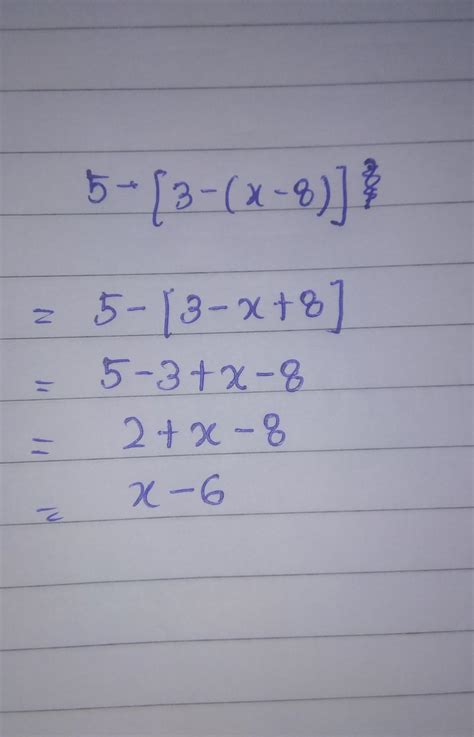 5-[3-(x-8)]
= 5-[3-x+8]
= 5-3+x-8
= 2+x-8
= x-6